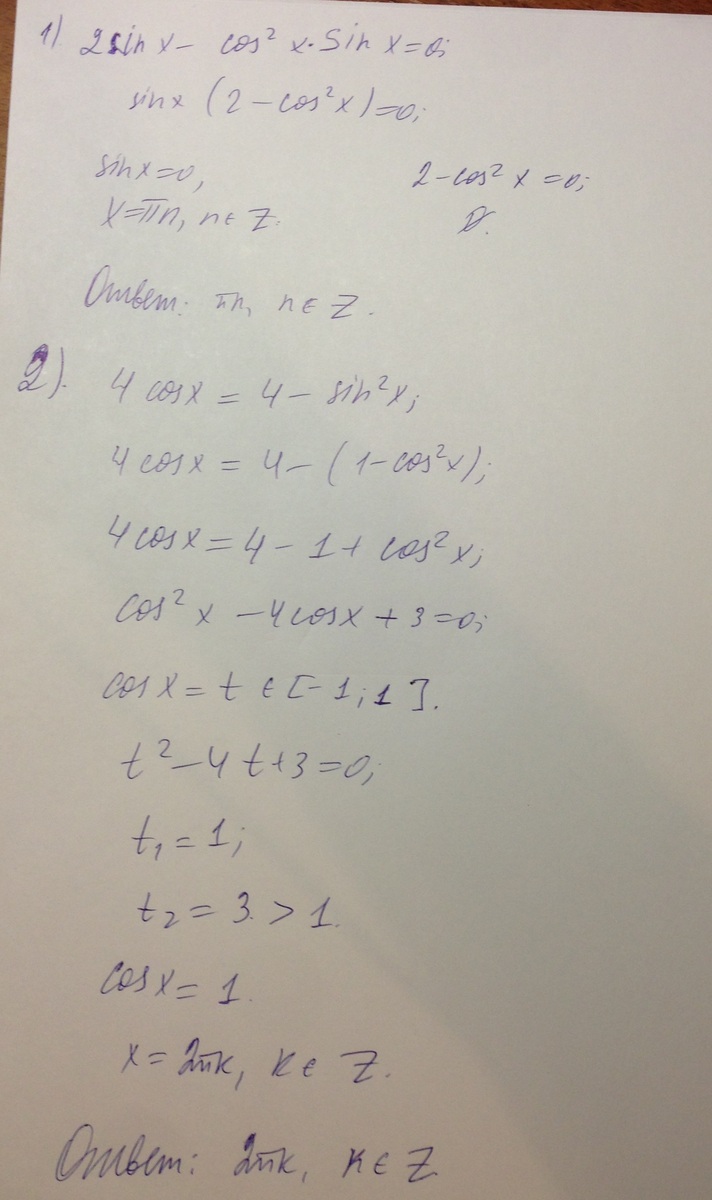 1) 2sin x - cos² x · Sin x = 0;
sinx (2 - cos²x) = 0;
sinx = 0, 2 - cos² x = 0;
X = πn, n ∈ Z. ∅.
Ответ: πn, n ∈ Z.
2). 4 cosx = 4 - sin²x;
4cosx = 4 - (1 - cos²x);
4cosx = 4 - 1 + cos²x;
cos² x - 4cosx + 3 = 0;
cosx = t ∈ [-1; 1].
t² - 4t + 3 = 0;
t₁ = 1;
t₂ = 3 > 1.
cosx = 1.
x = 2πk, k ∈ Z.
Ответ: 2πk, k ∈ Z